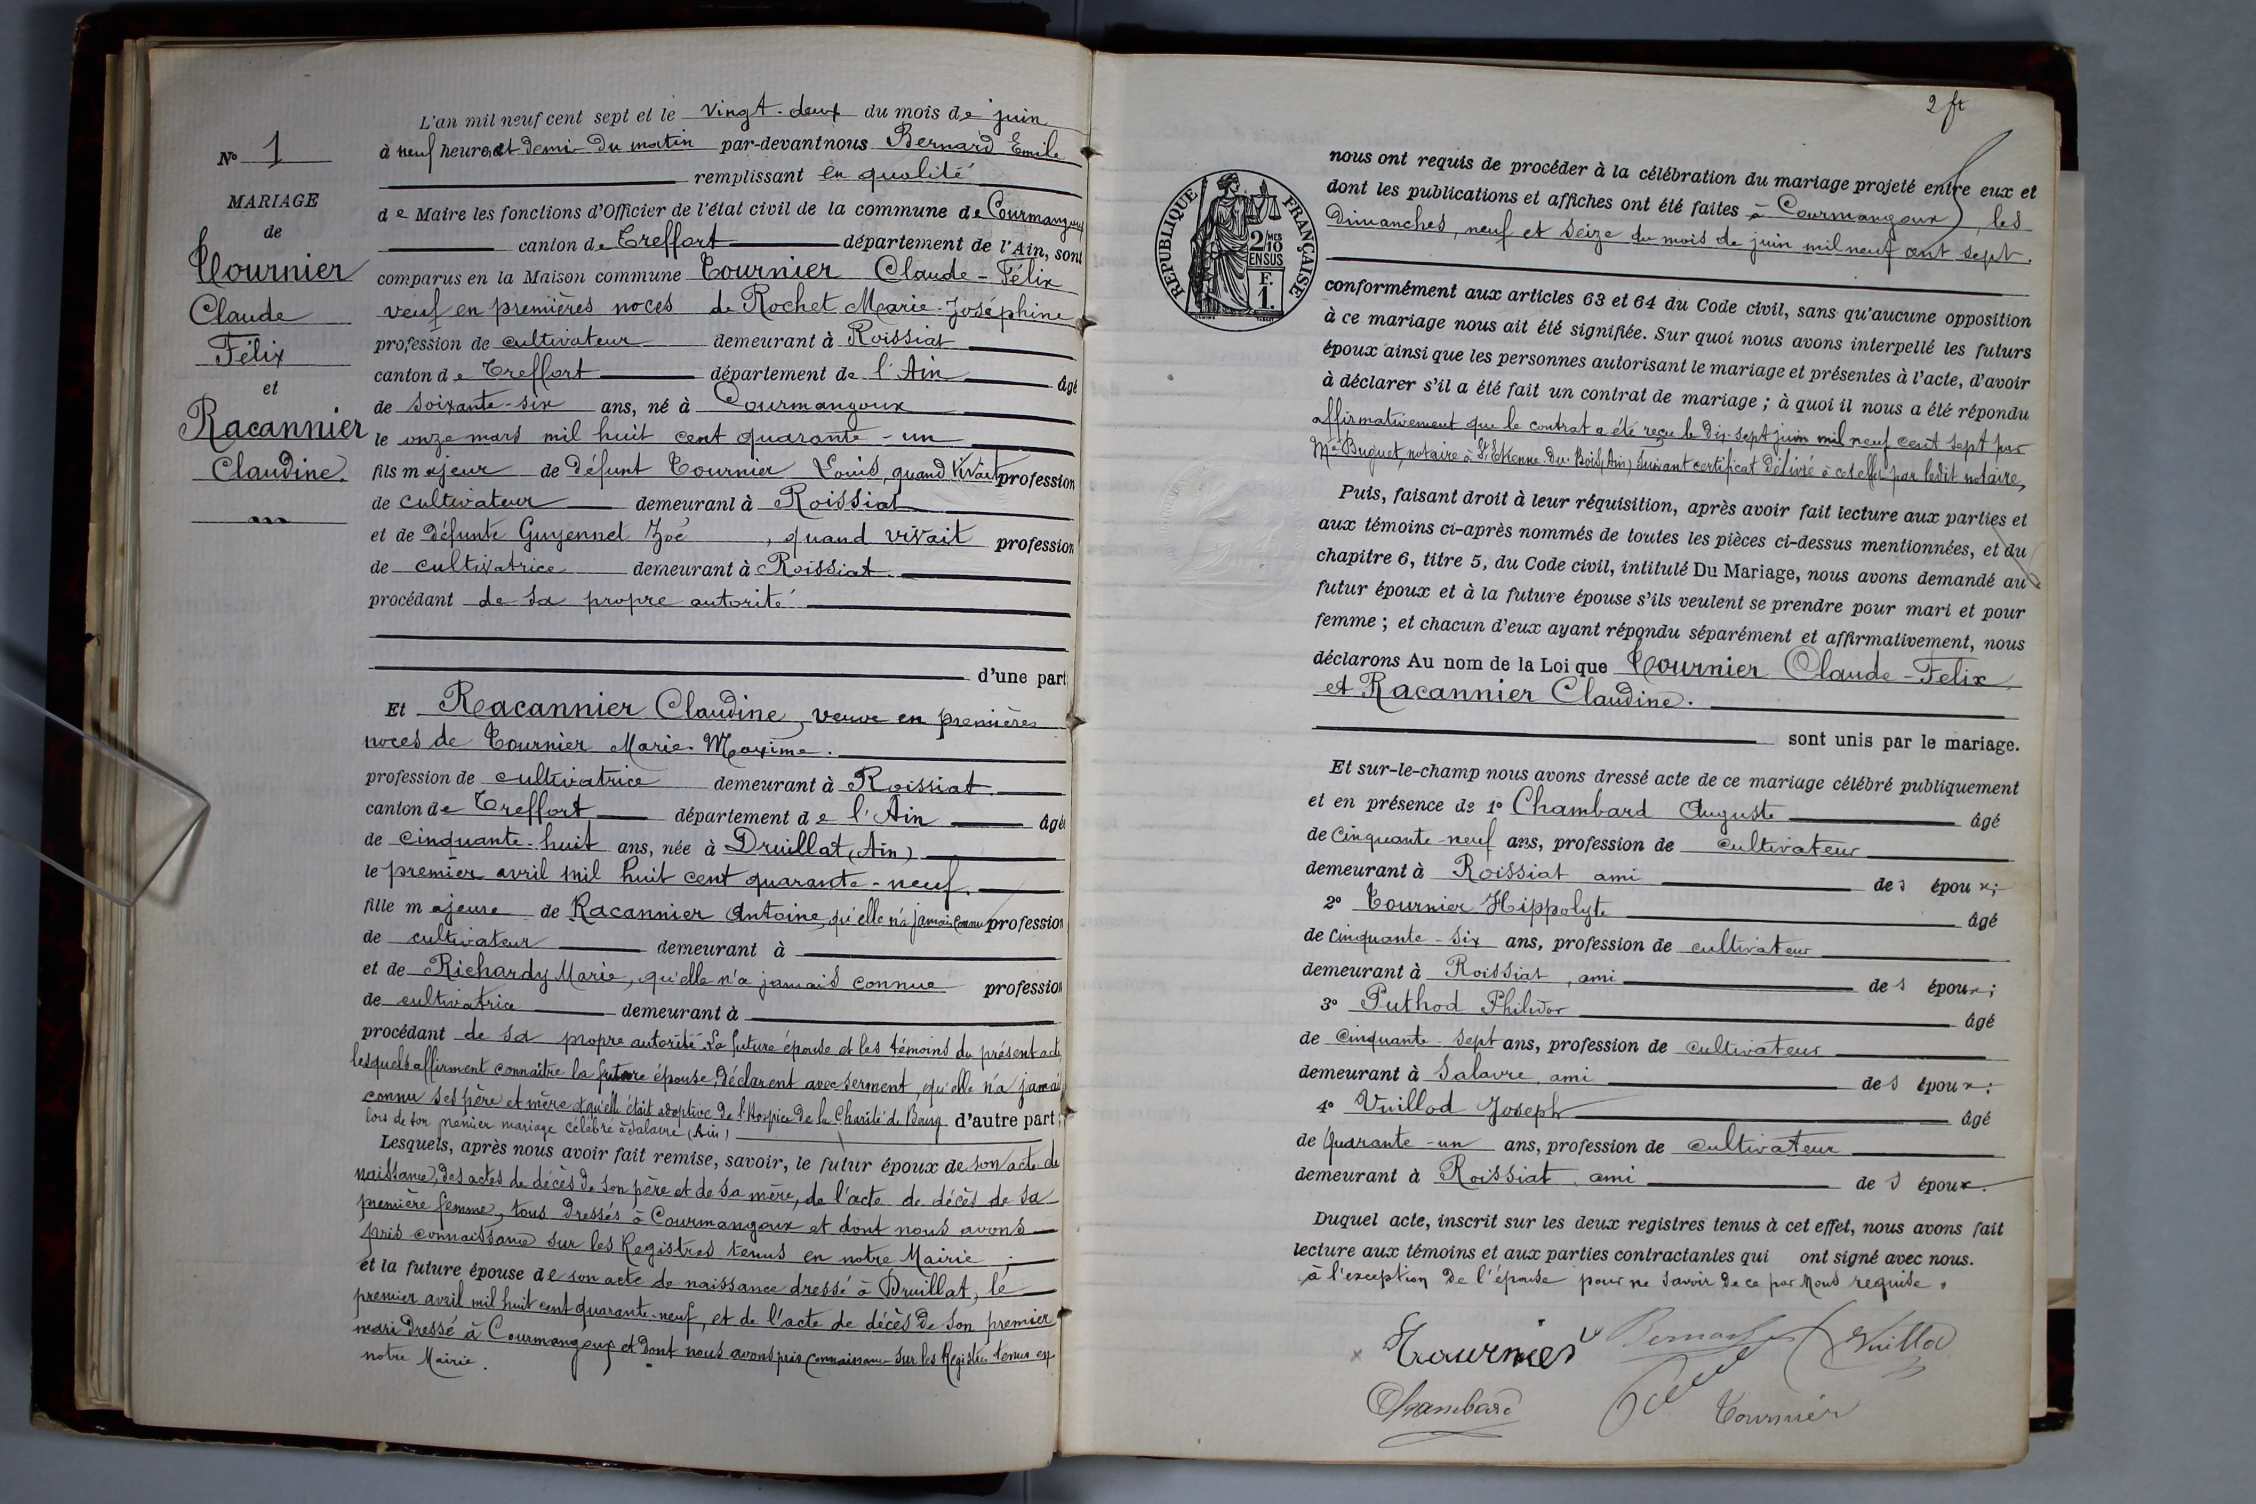 L'an mil neuf cent sept et le vingt-deux du mois de juin
à neuf heures et demi du matin par-devant nous Bernard Emile
remplissant en qualité
de Maire les fonctions d'Officier de l'état civil de la commune de Courmangoux
canton de Treffort département de l'Ain, sont
comparus en la Maison commune Tournier Claude-Félix
veuf en premières noces de Rochet Marie-Joséphine
profession de cultivateur demeurant à Roissiat
canton de Treffort département de l'Ain âgé
de soixante-six ans, né à Courmangoux
le onze mars mil huit cent quarante-un
fils majeur de défunt Tournier Louis, quand vivait profession
de cultivateur demeurant à Roissiat
et de défunte Guyennet Zoé, quand vivait profession
de cultivatrice demeurant à Roissiat.
procédant de sa propre autorité
d'une part
Et Racannier Claudine, veuve en premières
noces de Tournier Marie-Maxime.
profession de cultivatrice demeurant à Roissiat.
canton de Treffort département de l'Ain âgé
de cinquante-huit ans, née à Druillat (Ain)
le premier avril mil huit cent quarante-neuf.
fille majeure de Racannier Antoine, qu'elle n'a jamais connu profession
de cultivateur demeurant à
et de Richardy Marie, qu'elle n'a jamais connue profession
de cultivatrice demeurant à
procédant de sa propre autorité. La future épouse et les témoins du présent acte,
lesquels affirment connaître la future épouse, déclarent avec serment, qu'elle n'a jamais
connu ses père et mère et qu'elle était adoptive de l'Hospice de la Charité de Bourg d'autre part;
lors de son premier mariage célébré à Salavre (Ain)
Lesquels, après nous avoir fait remise, savoir, le futur époux de son acte de
naissance, des actes de décès de son père et de sa mère, de l'acte de décès de sa
première femme, tous dressés à Courmangoux et dont nous avons
pris connaissance sur les Registres tenus en notre Mairie;
et la future épouse de son acte de naissance dressé à Druillat, le
premier avril mil huit cent quarante-neuf, et de l'acte de décès de son premier
mari dressé à Courmangoux et dont nous avons pris connaissance sur les Registres tenus en
notre Mairie.
N° 1
MARIAGE
de
Tournier
Claude
Félix
et
Racannier
Claudine.
2 ft
RÉPUBLIQUE FRANÇAISE
2/10 MES
EN SUS
F.
1.
nous ont requis de procéder à la célébration du mariage projeté entre eux et
dont les publications et affiches ont été faites à Courmangoux, les
Dimanches, neuf et seize du mois de juin mil neuf cent sept.
conformément aux articles 63 et 64 du Code civil, sans qu'aucune opposition
à ce mariage nous ait été signifiée. Sur quoi nous avons interpellé les futurs
époux ainsi que les personnes autorisant le mariage et présentes à l'acte, d'avoir
à déclarer s'il a été fait un contrat de mariage; à quoi il nous a été répondu
affirmativement que le contrat a été reçu le dix-sept juin mil neuf cent sept par
Me Buguet, notaire à St Etienne-du-Bois (Ain) suivant certificat délivré à cet effet par ledit notaire,
Puis, faisant droit à leur réquisition, après avoir fait lecture aux parties et
aux témoins ci-après nommés de toutes les pièces ci-dessus mentionnées, et du
chapitre 6, titre 5, du Code civil, intitulé Du Mariage, nous avons demandé au
futur époux et à la future épouse s'ils veulent se prendre pour mari et pour
femme; et chacun d'eux ayant répondu séparément et affirmativement, nous
déclarons Au nom de la Loi que Tournier Claude-Félix
et Racannier Claudine.
sont unis par le mariage.
Et sur-le-champ nous avons dressé acte de ce mariage célébré publiquement
et en présence de 1° Chambard Auguste âgé
de cinquante-neuf ans, profession de cultivateur
demeurant à Roissiat ami des époux;
2° Tournier Hippolyte âgé
de cinquante-six ans, profession de cultivateur
demeurant à Roissiat, ami des époux;
3° Puthod Philidor âgé
de cinquante-sept ans, profession de cultivateur
demeurant à Salavre, ami des époux;
4° Vuillod Joseph âgé
de Quarante-un ans, profession de cultivateur
demeurant à Roissiat, ami des époux.
Duquel acte, inscrit sur les deux registres tenus à cet effet, nous avons fait
lecture aux témoins et aux parties contractantes qui ont signé avec nous.
à l'exception de l'épouse pour ne savoir de ce par nous requise.
Tournier Bernard Vuillod
Chambard Tournier